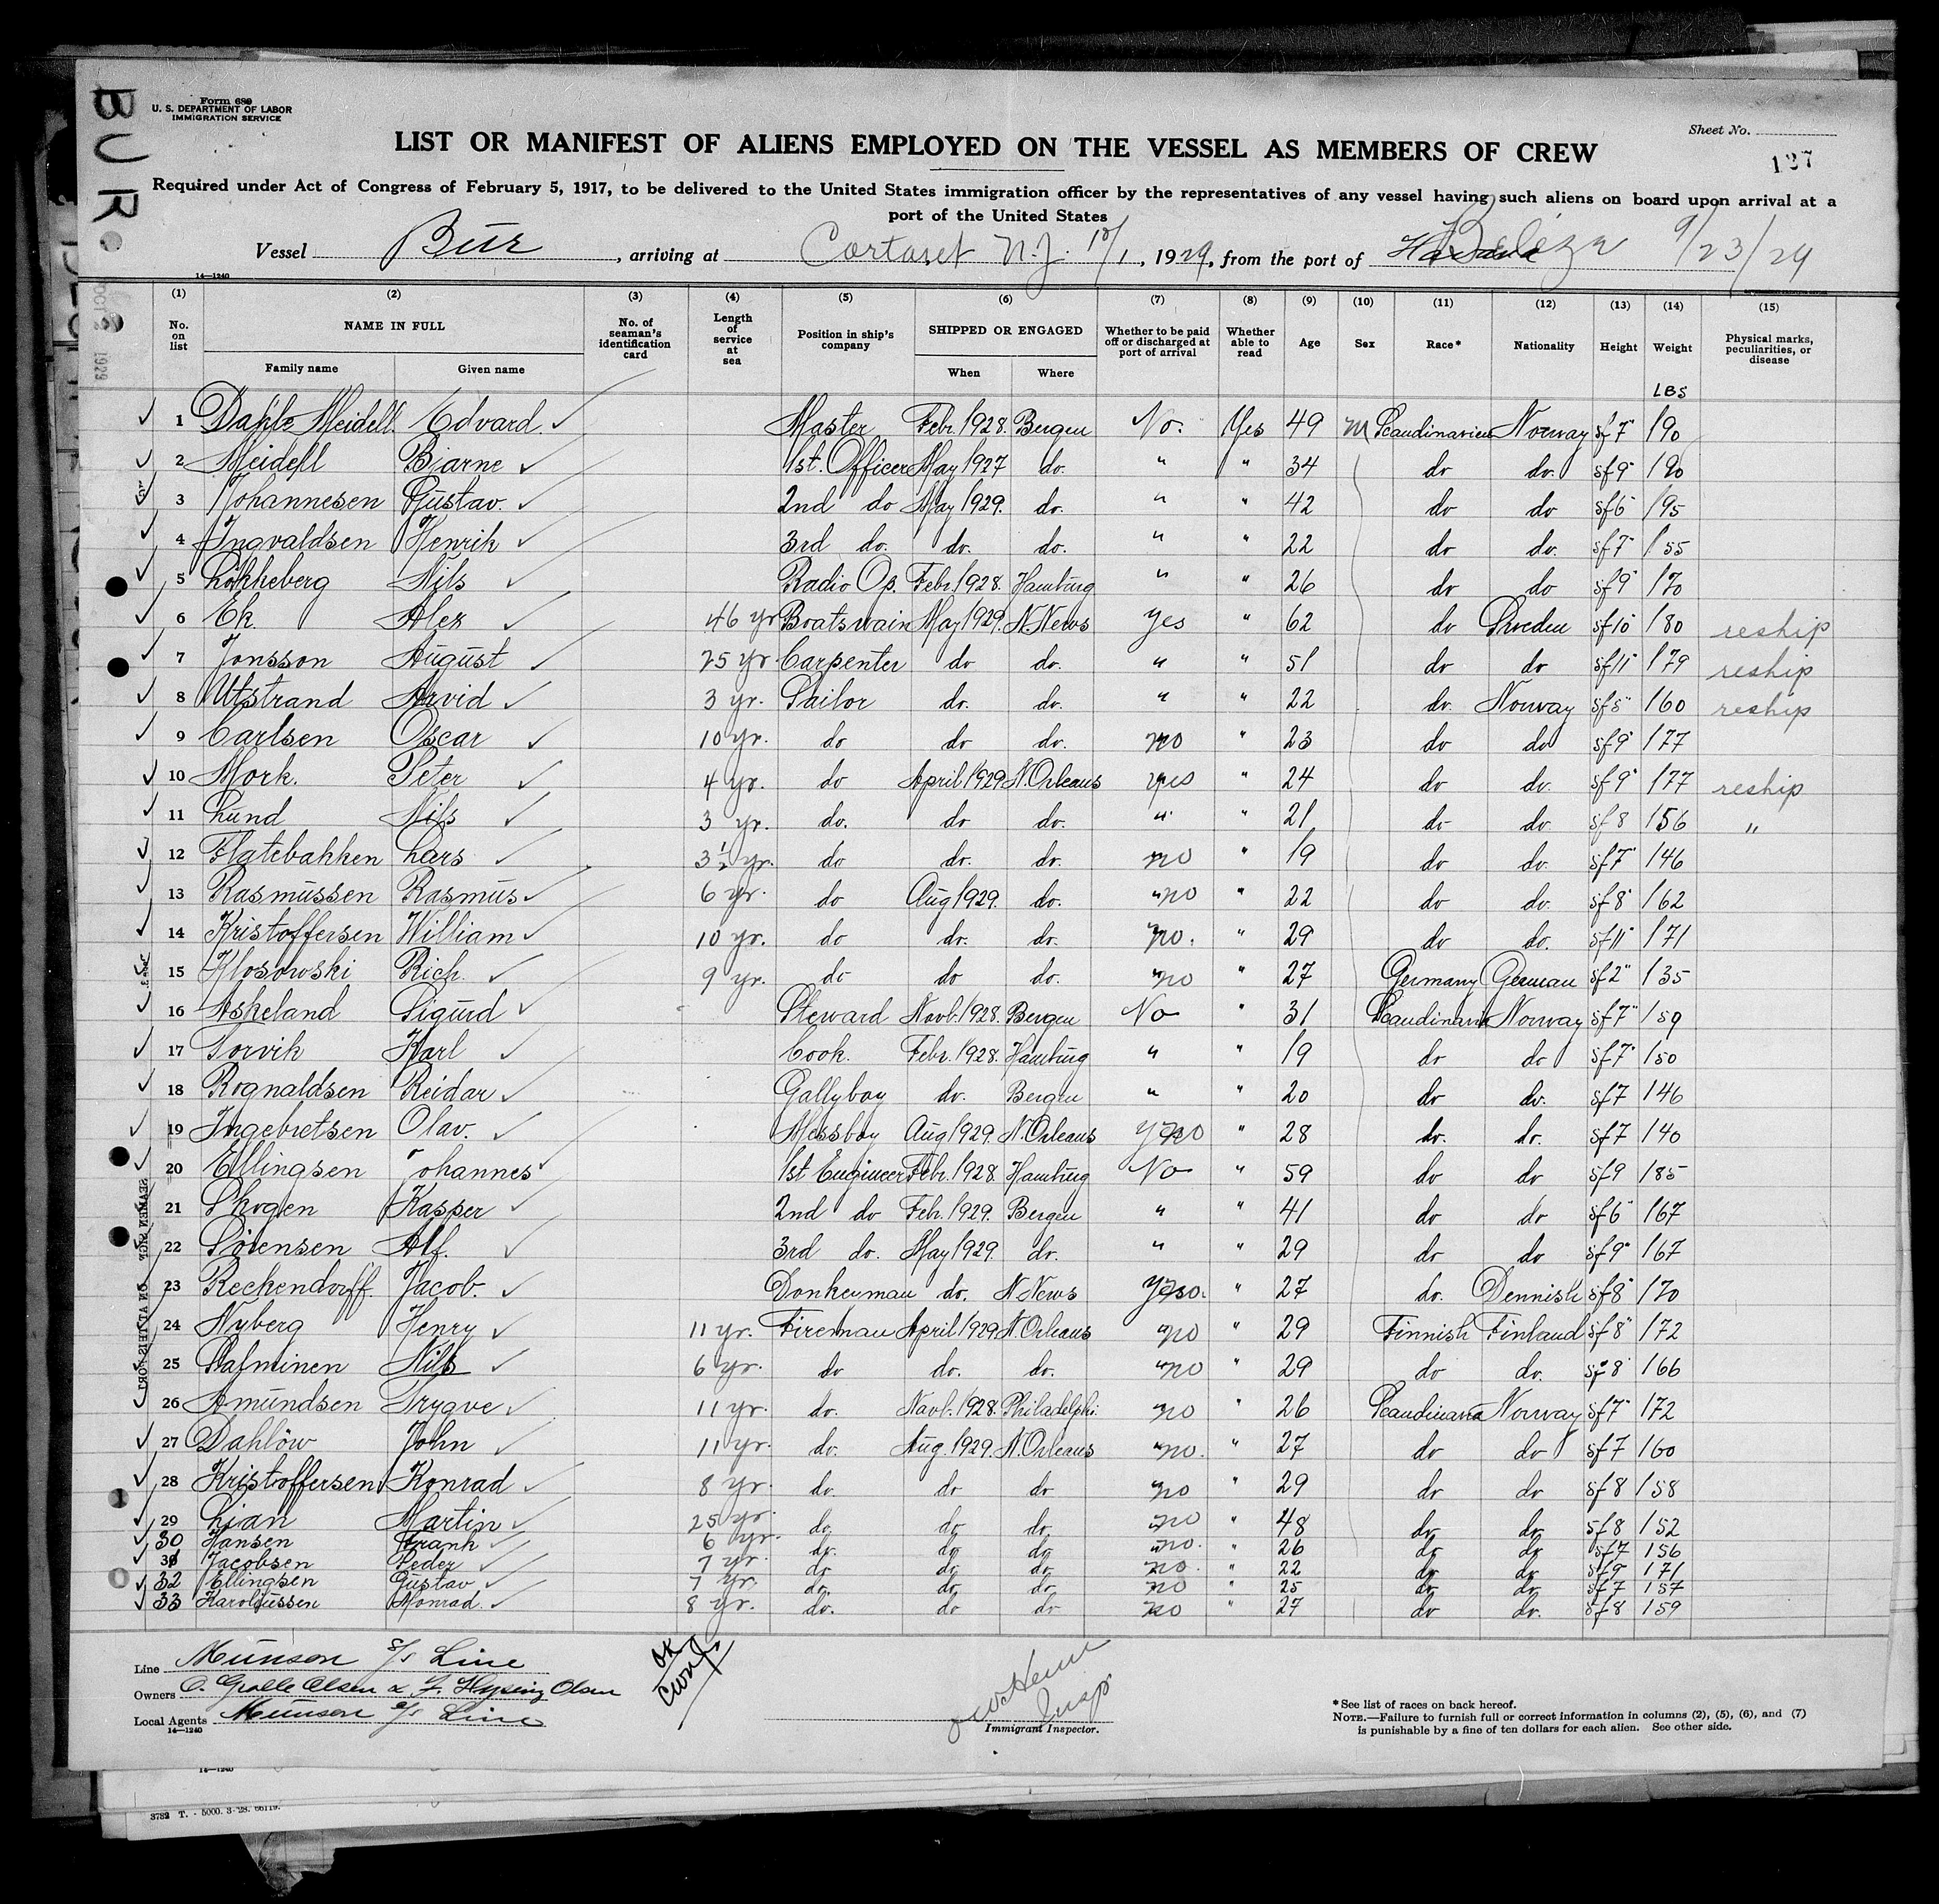 BUR
Form 689
U. S. DEPARTMENT OF LABOR
IMMIGRATION SERVICE
Sheet No.
127
LIST OR MANIFEST OF ALIENS EMPLOYED ON THE VESSEL AS MEMBERS OF CREW
Required under Act of Congress of February 5, 1917, to be delivered to the United States immigration officer by the representatives of any vessel having such aliens on board upon arrival at a
port of the United States
Vessel Bur, arriving at Cartaret N.J. 10/1, 1929, from the port of Havana Belize 9/23/29
14—1240
OCT 2 1929
(1) (2) (3) (4) (5) (6) (7) (8) (9) (10) (11) (12) (13) (14) (15)
No. on list NAME IN FULL No. of seaman's identification card Length of service at sea Position in ship's company SHIPPED OR ENGAGED Whether to be paid off or discharged at port of arrival Whether able to read Age Sex Race* Nationality Height Weight Physical marks, peculiarities, or disease
Family name Given name When Where
LBS
1 Dahle Meidell Edvard Master Febr. 1928. Bergen No. Yes 49 m Scandinavien Norway 5f 7" 190
2 Meidell Bjarne 1st. Officer May 1927 do. " " 34 do do. 5f 9" 190
3 Johannesen Gustav. 2nd do May 1929. do. " " 42 do do 5f 6" 195
4 Ingvaldsen Henrik 3rd do. do. do. " " 22 do do. 5f 7" 155
5 Lökkeberg Nils Radio Op. Febr. 1928. Hamburg " " 26 do do 5f 9" 170
6 Ek Alex 46 yr Boatswain May 1929. N. News yes " 62 do Sweden 5f 10" 180 reship
7 Jonsson August 25 yr. Carpenter do do. " " 51 do do 5f 11" 179 reship
8 Utstrand Arvid 3 yr. Sailor do. do. " " 22 do. Norway 5f 5" 160 reship
9 Carlsen Oscar 10 yr. do do do. no " 23 do do 5f 9" 177
10 Mork. Peter 4 yr. do April 1929 N. Orleans yes " 24 do do. 5f 9" 177 reship
11 Lund Nils 3 yr. do. do do. " " 21 do do 5f 8 156 "
12 Flatebakken Lars 3½ yr. do do. do. no " 19 do do. 5f 7" 146
13 Rasmussen Rasmus 6 yr. do Aug 1929. do. " no " 22 do do. 5f 8" 162
14 Kristoffersen William 10 yr. do do. do. no. " 29 do do. 5f 11" 171
15 Klosowski Rich. 9 yr. do do do. " no " 27 Germany German 5f 2" 135
16 Askeland Sigurd Steward Novb. 1928. Bergen No " 31 Scandinavia Norway 5f 7" 159
17 Torvik Karl Cook. Febr. 1928. Hamburg " " 19 do do 5f 7" 150
18 Rognaldsen Reidar Gallyboy do. Bergen " " 20 do do. 5f 7 146
19 Ingebretsen Olav. Messboy Aug 1929. N. Orleans no " 28 do. do. 5f 7 140
20 Ellingsen Johannes 1st Engineer Febr. 1928. Hamburg No " 59 do do 5f 9 185
21 Skogen Kasper 2nd do Febr. 1929. Bergen " " 41 do do 5f 6" 167
22 Sørensen Alf. 3rd do. May 1929. do. " " 29 do do 5f 9" 167
23 Reckendorff. Jacob. Donkeyman do. N. News no. " 27 do. Dennish 5f 8" 170
24 Nyberg Henry 11 yr. Fireman April 1929 N. Orleans " no " 29 Finnish Finland 5f 8" 172
25 Salminen Nils 6 yr. do do. do. " no " 29 do do. 5f 8" 166
26 Amundsen Trygve 11 yr. do. Novb. 1928. Philadelphi. no " 26 Scandinavia Norway 5f 7" 172
27 Dahlöw John 11 yr. do. Aug. 1929. N. Orleans " no. " 27 do do 5f 7 160
28 Kristoffersen Konrad 8 yr. do. do do " no " 29 do do 5f 8 158
29 Lian Martin 25 yr. do. do do. " no " 48 do. do. 5f 8 152
30 Hansen Frank 6 yr. do. do do " no. " 26 do do 5f 7 156
31 Jacobsen Peder 7 yr. do do do. no. " 22 do do 5f 9 171
32 Ellingsen Gustav 7 yr. do. do. do no " 25 do. do. 5f 7 157
33 Karoldussen Monrad. 8 yr. do. do do no " 27 do do. 5f 8 159
SEAMEN SIGN ON AT THIS PORT
Line Munson S/S Line
Owners O. Grolle Olsen & F. Hysing Olsen
Local Agents Munson S/S Line
14—1240
OK
Insp
Immigrant Inspector.
* See list of races on back hereof.
NOTE.—Failure to furnish full or correct information in columns (2), (5), (6), and (7)
is punishable by a fine of ten dollars for each alien. See other side.
14—1240
3782 T. - 5000. 3-28. 66119.